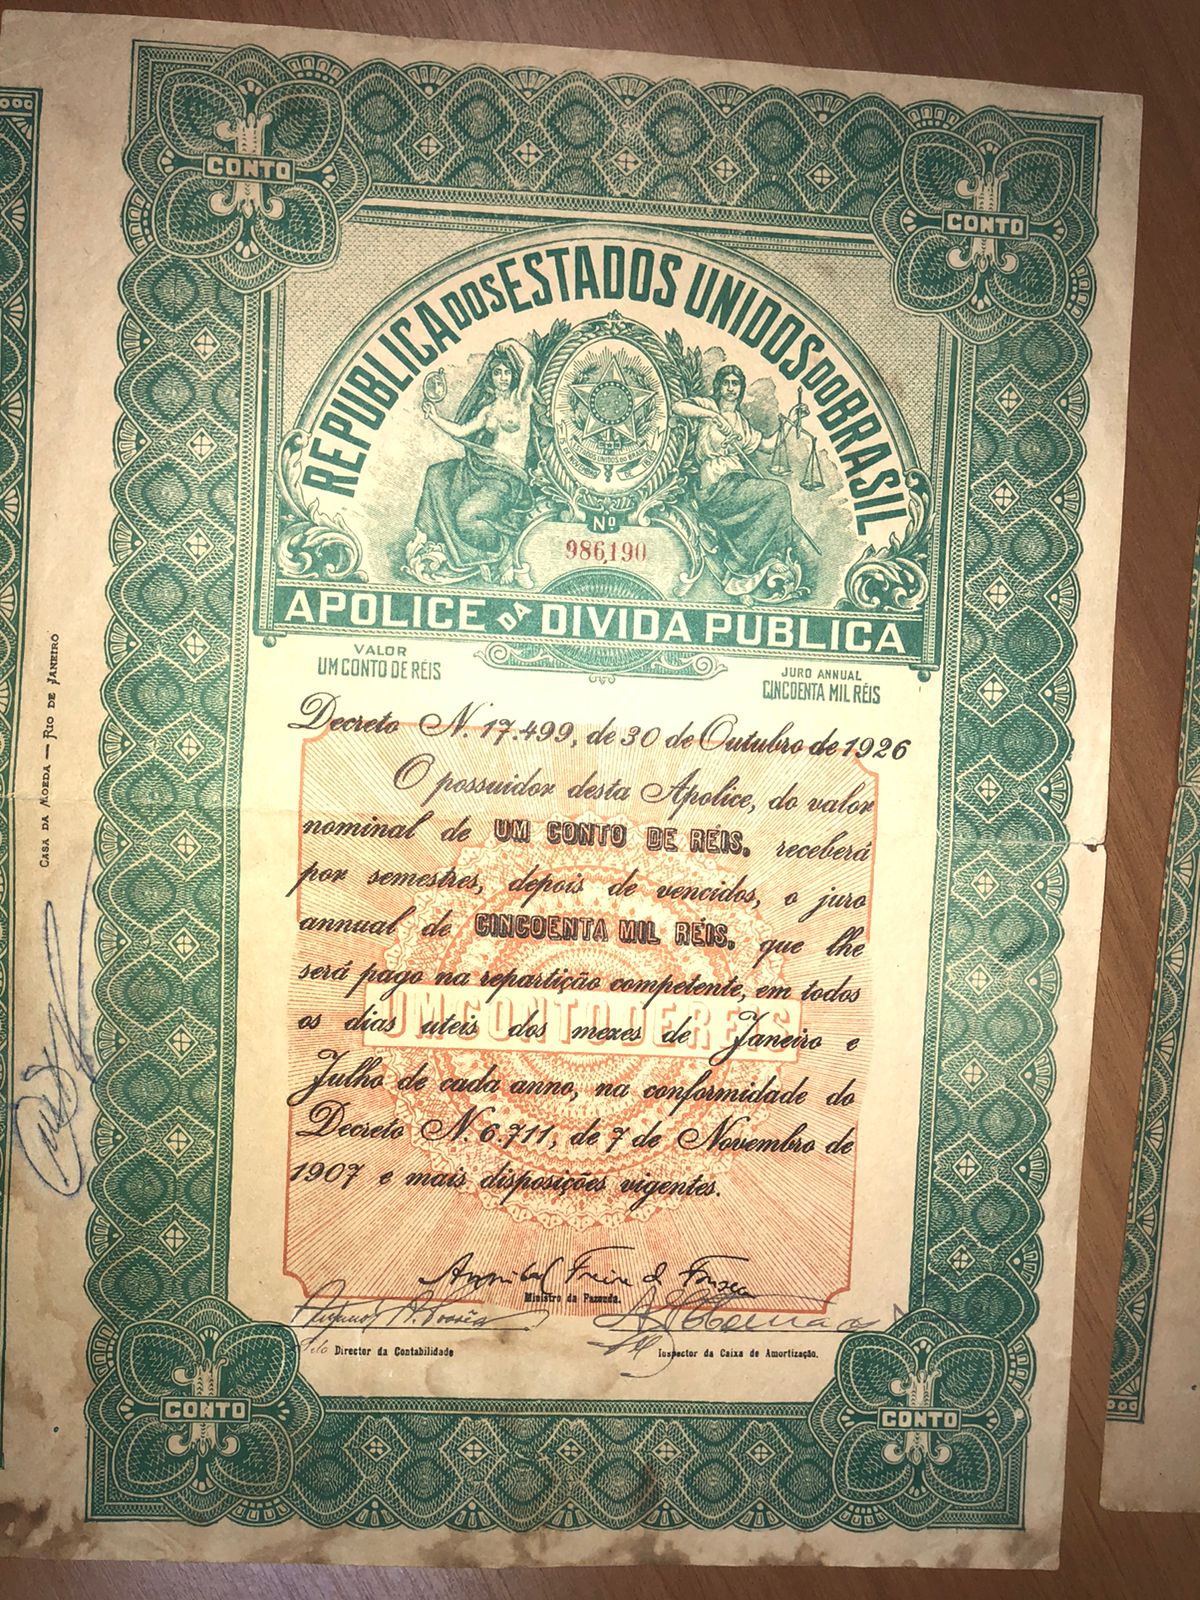 1
CONTO
1
CONTO
REPUBLICA DOS ESTADOS UNIDOS DO BRASIL
Nº
986,190
APOLICE DA DIVIDA PUBLICA
VALOR
UM CONTO DE RÉIS
JURO ANNUAL
CINCOENTA MIL RÉIS
Decreto N. 17.499, de 30 de Outubro de 1926
O possuidor desta Apolice, do valor
nominal de UM CONTO DE RÉIS, receberá
por semestres, depois de vencidos, o juro
annual de CINCOENTA MIL RÉIS, que lhe
será pago na repartição competente, em todos
os dias uteis dos mezes de Janeiro e
Julho de cada anno, na conformidade do
Decreto N. 6.711, de 7 de Novembro de
1907 e mais disposições vigentes.
UM CONTO DE RÉIS
Annibal Freire da Fonseca
Ministro da Fazenda.
Pelo Director da Contabilidade
Inspector da Caixa de Amortização.
1
CONTO
1
CONTO
CASA DA MOEDA — RIO DE JANEIRO